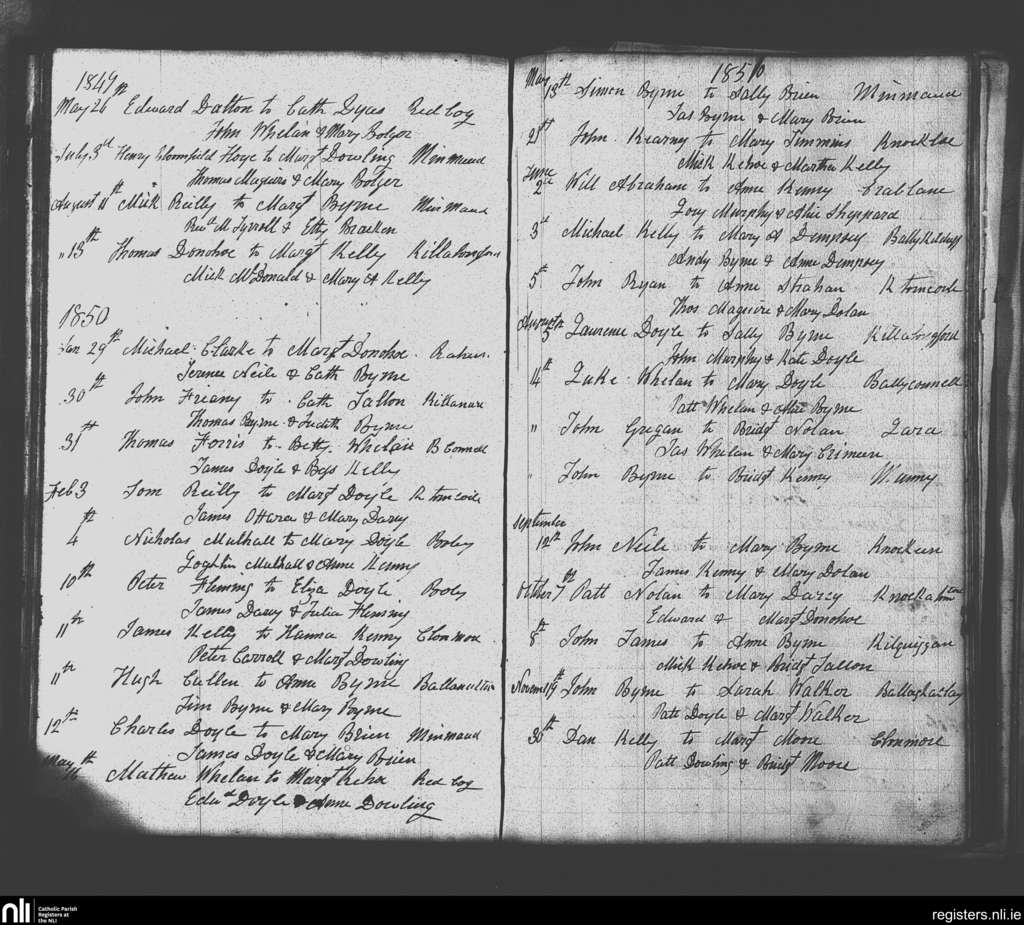 1849
May 26th Edward Dalton to Cath Dyas Red Bog
John Whelan & Mary Bolger
July 3rd Henry Bloomfield Hoye to Margt Dowling Minmaud
Thomas Maguire & Mary Bolger
August 11th Mick Reilly to Margt Byrne Minmaud
Revd M Tyrroll & Etty Bracken
" 13th Thomas Donohoe to Margt Kelly
Mick McDonald & Mary A Kelly
1850
Jan 29th Michael Clarke to Margt Donohoe
Terence Neile & Cath Byrne
30th John to Cath Tallon Killanure
Thomas Byrne & Judith Byrne
31st Thomas Ferris to Betty Whelan B Connell
James Doyle & Bess Kelly
Feb 3 Tom Reilly to Margt Doyle
James OHara & Mary Darcy
4th Nicholas Mulhall to Mary Doyle Booley
Loghlin Mulhall & Anne Kenny
10th Peter Fleming to Eliza Doyle Booly
James Darcy & Julia Fleming
11th James Kelly to Hanna Kenny Clonmore
Peter Carroll & Margt Dowling
11th Hugh Cullen to Anne Byrne
Jim Byrne & Mary Byrne
12th Charles Doyle to Mary Brien Minmaud
James Doyle & Mary Brien
May Mathew Whelan to Margt Kehoe Red Bog
Edwd Doyle & Anne Dowling
1850
May 13th Simon Byrne to Sally Brien Minmaud
Jas Byrne & Mary Brien
21st John Kearny to Mary Timmins Knockloe
Mick Kehoe & Martha Kelly
June 2nd Will Abraham to Anne Kenny Crablane
Joey Murphy & Alice Sheppard
3rd Michael Kelly to Mary A Dempsey
Andy Byrne & Anne Dempsey
5th John Ryan to Anne Strahan
Thos Maguire & Mary Dolan
August 5th Laurence Doyle to Sally Byrne
John Murphy & Kate Doyle
14th Luke Whelan to Mary Doyle Ballyconnell
Patt Whelan & Byrne
" John Gregan to Bridgt Nolan
Jas Whelan & Mary
" John Byrne to Bridgt Kenny
September
12th John Neile to Mary Byrne
James Kenny & Mary Dolan
October 7th Patt Nolan to Mary Darcy
Edward & Margt Donohoe
8th John James to Anne Byrne Kilquiggan
Mick Kehoe & Bridgt Tallon
November 19th John Byrne to Sarah Walker
Patt Doyle & Margt Walker
30th Dan Kelly to Margt Moore Clonmore
Patt Dowling & Bridgt Moore
nli
Catholic Parish
Registers at
the NLI
registers.nli.ie